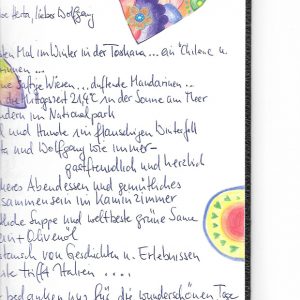 lieber Wolfgang
Mal im Winter in der Toskana... ein Chilene u.
...
saftige Wiesen... duftende Mandarinen..
die Mittagszeit 21,4°C in der Sonne am Meer
wandern im Nationalpark
und Hunde im flauschigen Winterfell
und Wolfgang wie immer -
gastfreundlich und herzlich
Abendessen und gemütliches
zusammensein im Kaminzimmer
Suppe und weltbeste grüne Sauce
Olivenöl
von Geschichten u. Erlebnissen
trifft Italien ....
bedanken uns für die wunderschönen Tage